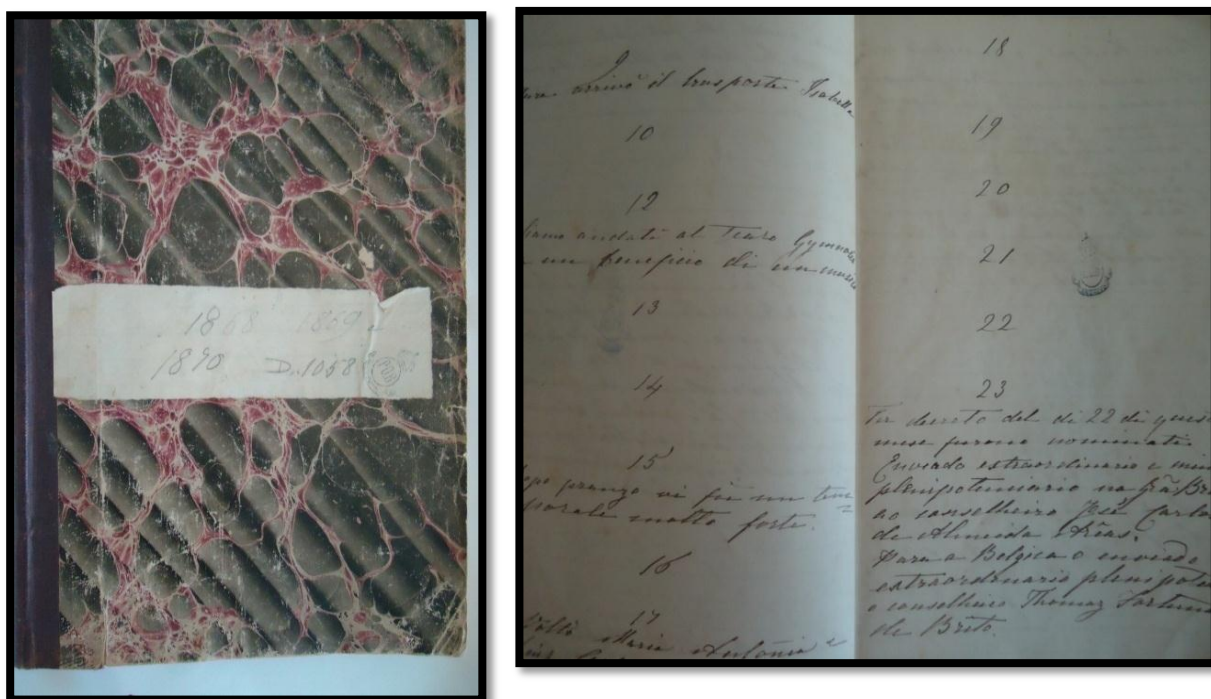 1868 1869 e
1870 D. 1058
9
arrivò il trasporte Isabella
10
12
andati al Teatro Gymnasio
un beneficio di un
13
14
15
pranzo vi fu un tem=
porale molto forte.
16
17
Maria Antonia e
18
19
20
21
22
23
Per decreto del di 22 di
mese furono nominati
Enviado extraordinario e
plenipotenciario na Grã Br
ao conselheiro José Carlo
de Almeida Arêas.
Para a Belgica o enviado
extraordinario plenipote
o conselheiro Thomaz Fortuna
de Brito.